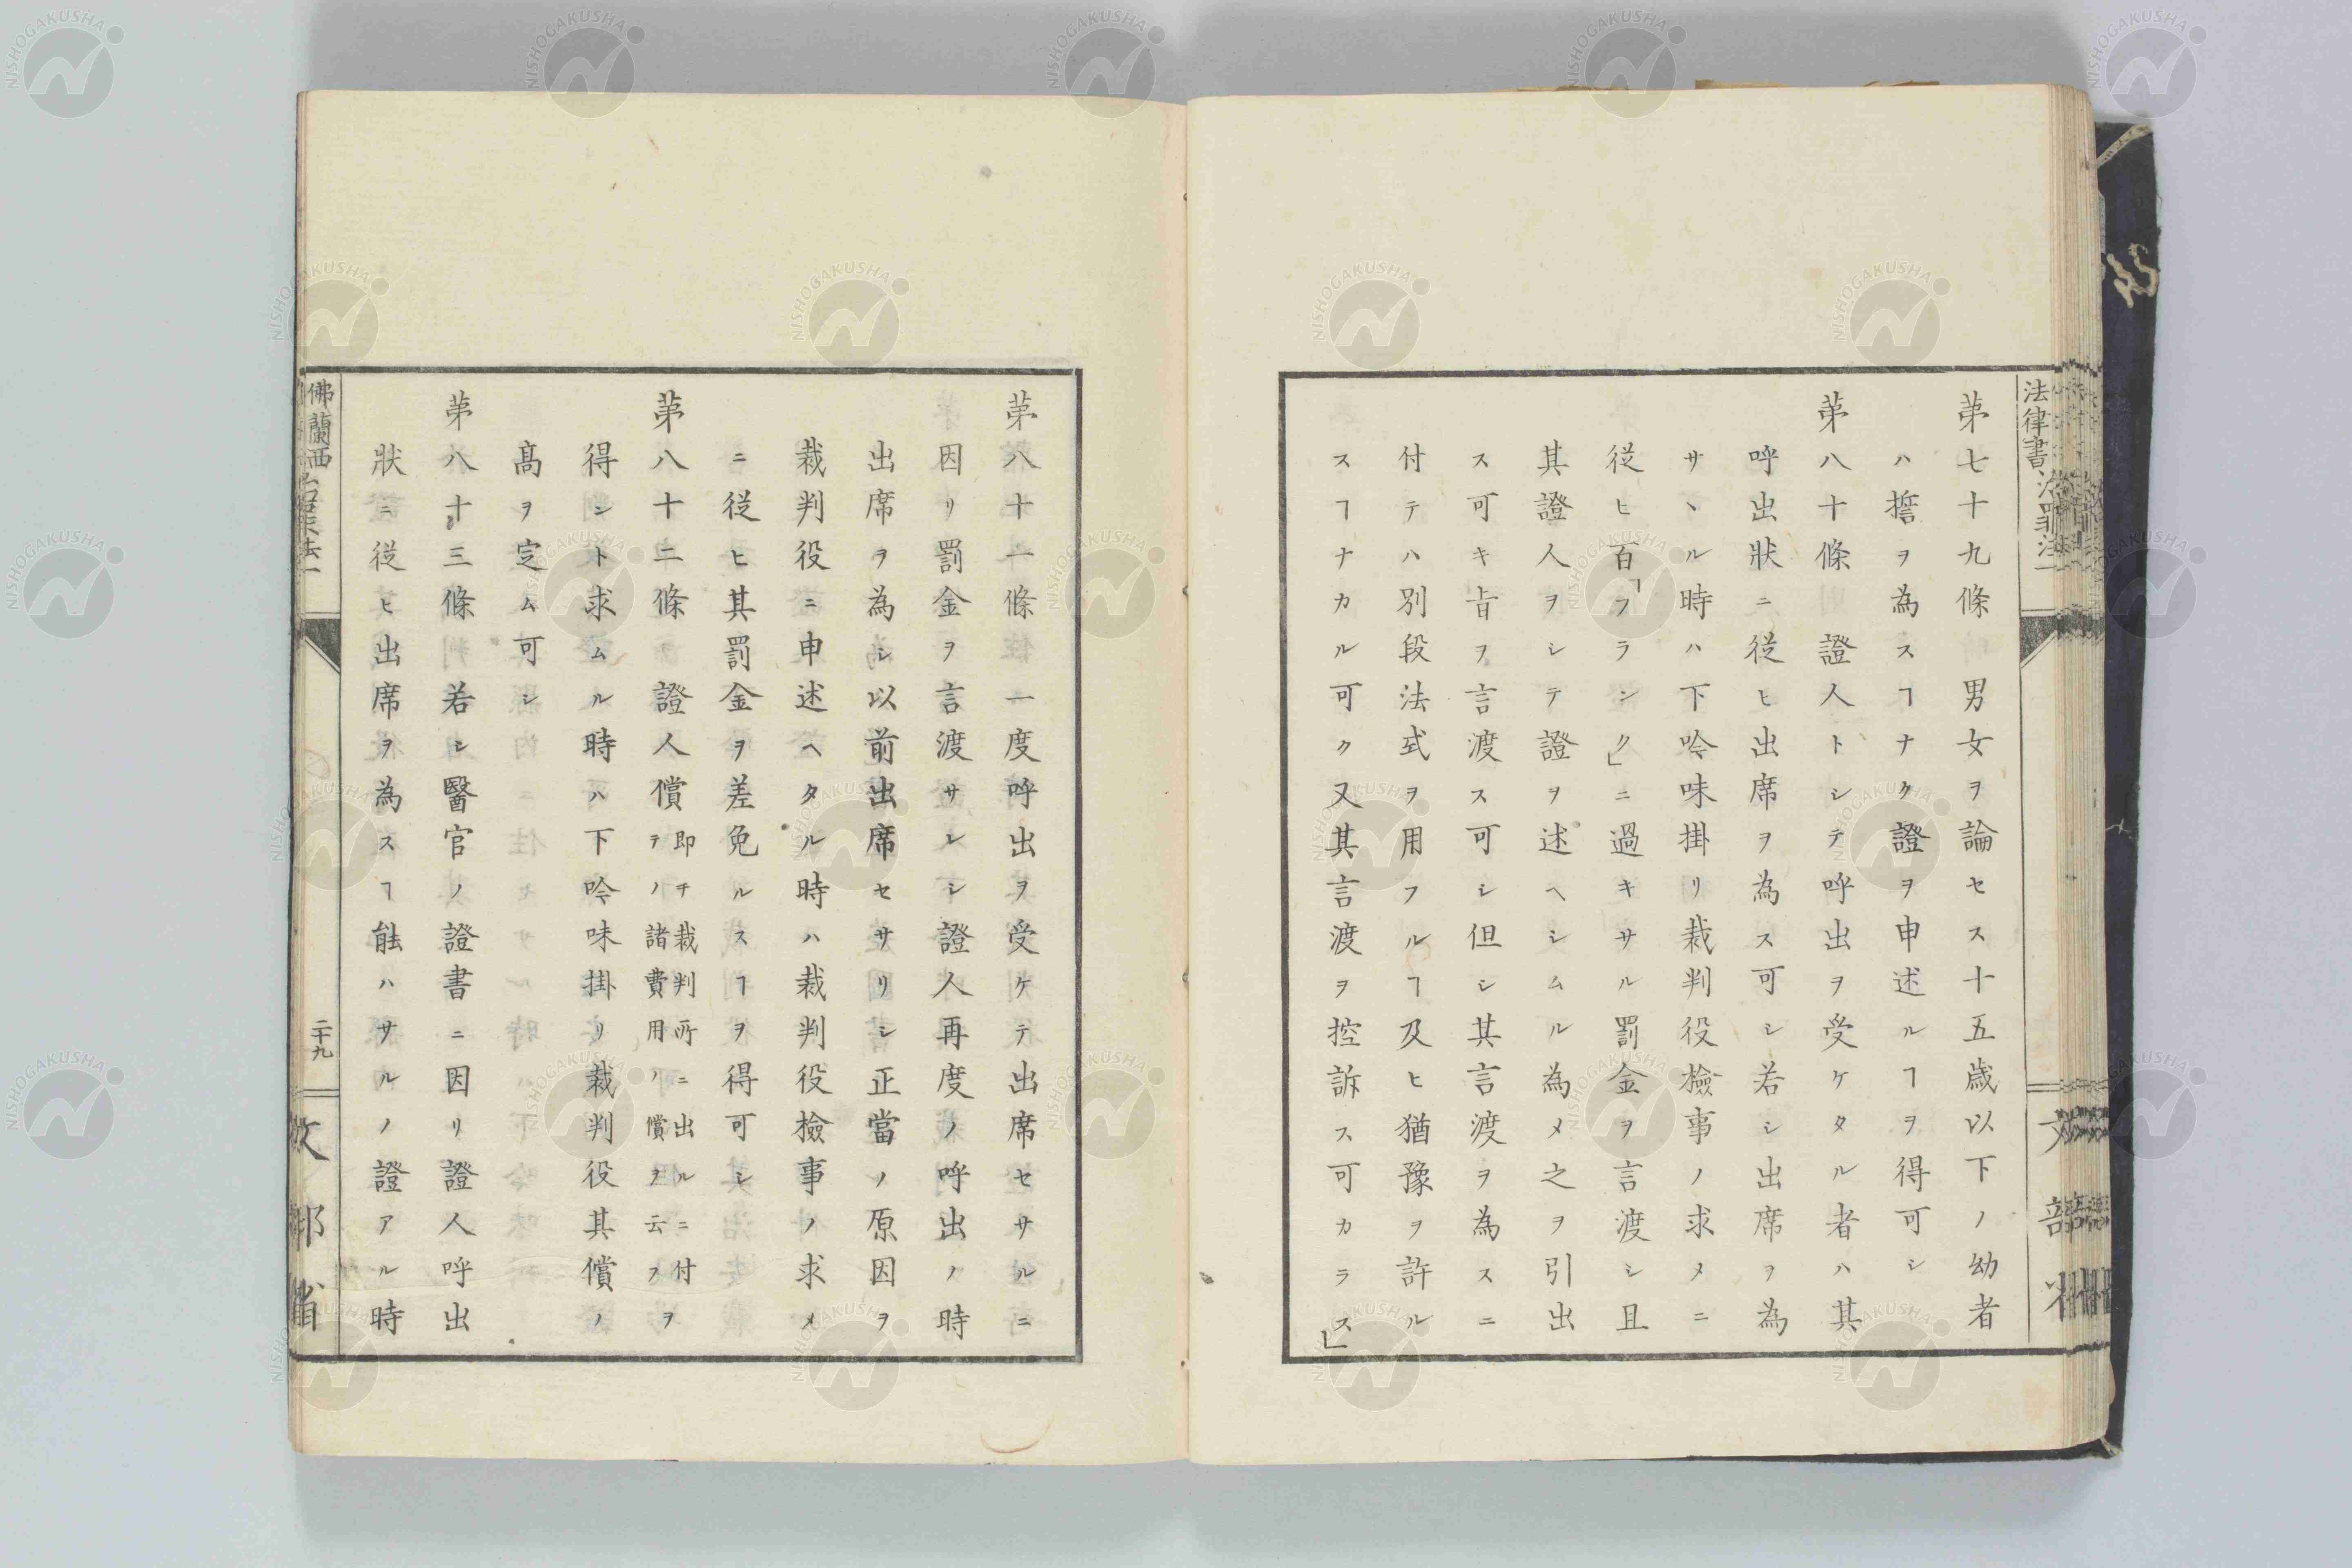 第七十九條　男女ヲ論セス十五歳以下ノ幼者
ハ誓ヲ為スヿナク證ヲ申述ルヿヲ得可シ
第八十條　證人トシテ呼出ヲ受ケタル者ハ其
呼出狀ニ従ヒ出席ヲ為ス可シ若シ出席ヲ為
サヽル時ハ下吟味掛リ裁判役檢事ノ求メニ
従ヒ百「フランク」ニ過キサル罰金ヲ言渡シ且
其證人ヲシテ證ヲ述ヘシムル為メ之ヲ引出
ス可キ旨ヲ言渡ス可シ但シ其言渡ヲ為スニ
付テハ別段法式ヲ用フルヿ及ヒ猶豫ヲ許ル
スヿナカル可ク又其言渡ヲ控訴ス可カラス」
第八十一條　一度呼出ヲ受ケテ出席セサルニ
因リ罰金ヲ言渡サレシ證人再度ノ呼出ノ時
出席ヲ為シ以前出席セサリシ正當ノ原因ヲ
裁判役ニ申述ヘタル時ハ裁判役檢事ノ求メ
ニ従ヒ其罰金ヲ差免ルスヿヲ得可シ
第八十二條　證人償即チ裁判所ニ出ルニ付ヲ
テノ諸費用ノ償ヲ云フ
得ント求ムル時ハ下吟味掛リ裁判役其償ノ
髙ヲ定ム可シ
第八十三條　若シ醫官ノ證書ニ因リ證人呼出
狀ニ従ヒ出席ヲ為スヿ能ハサルノ證アル時
法律書
佛蘭西
二十九
文部省